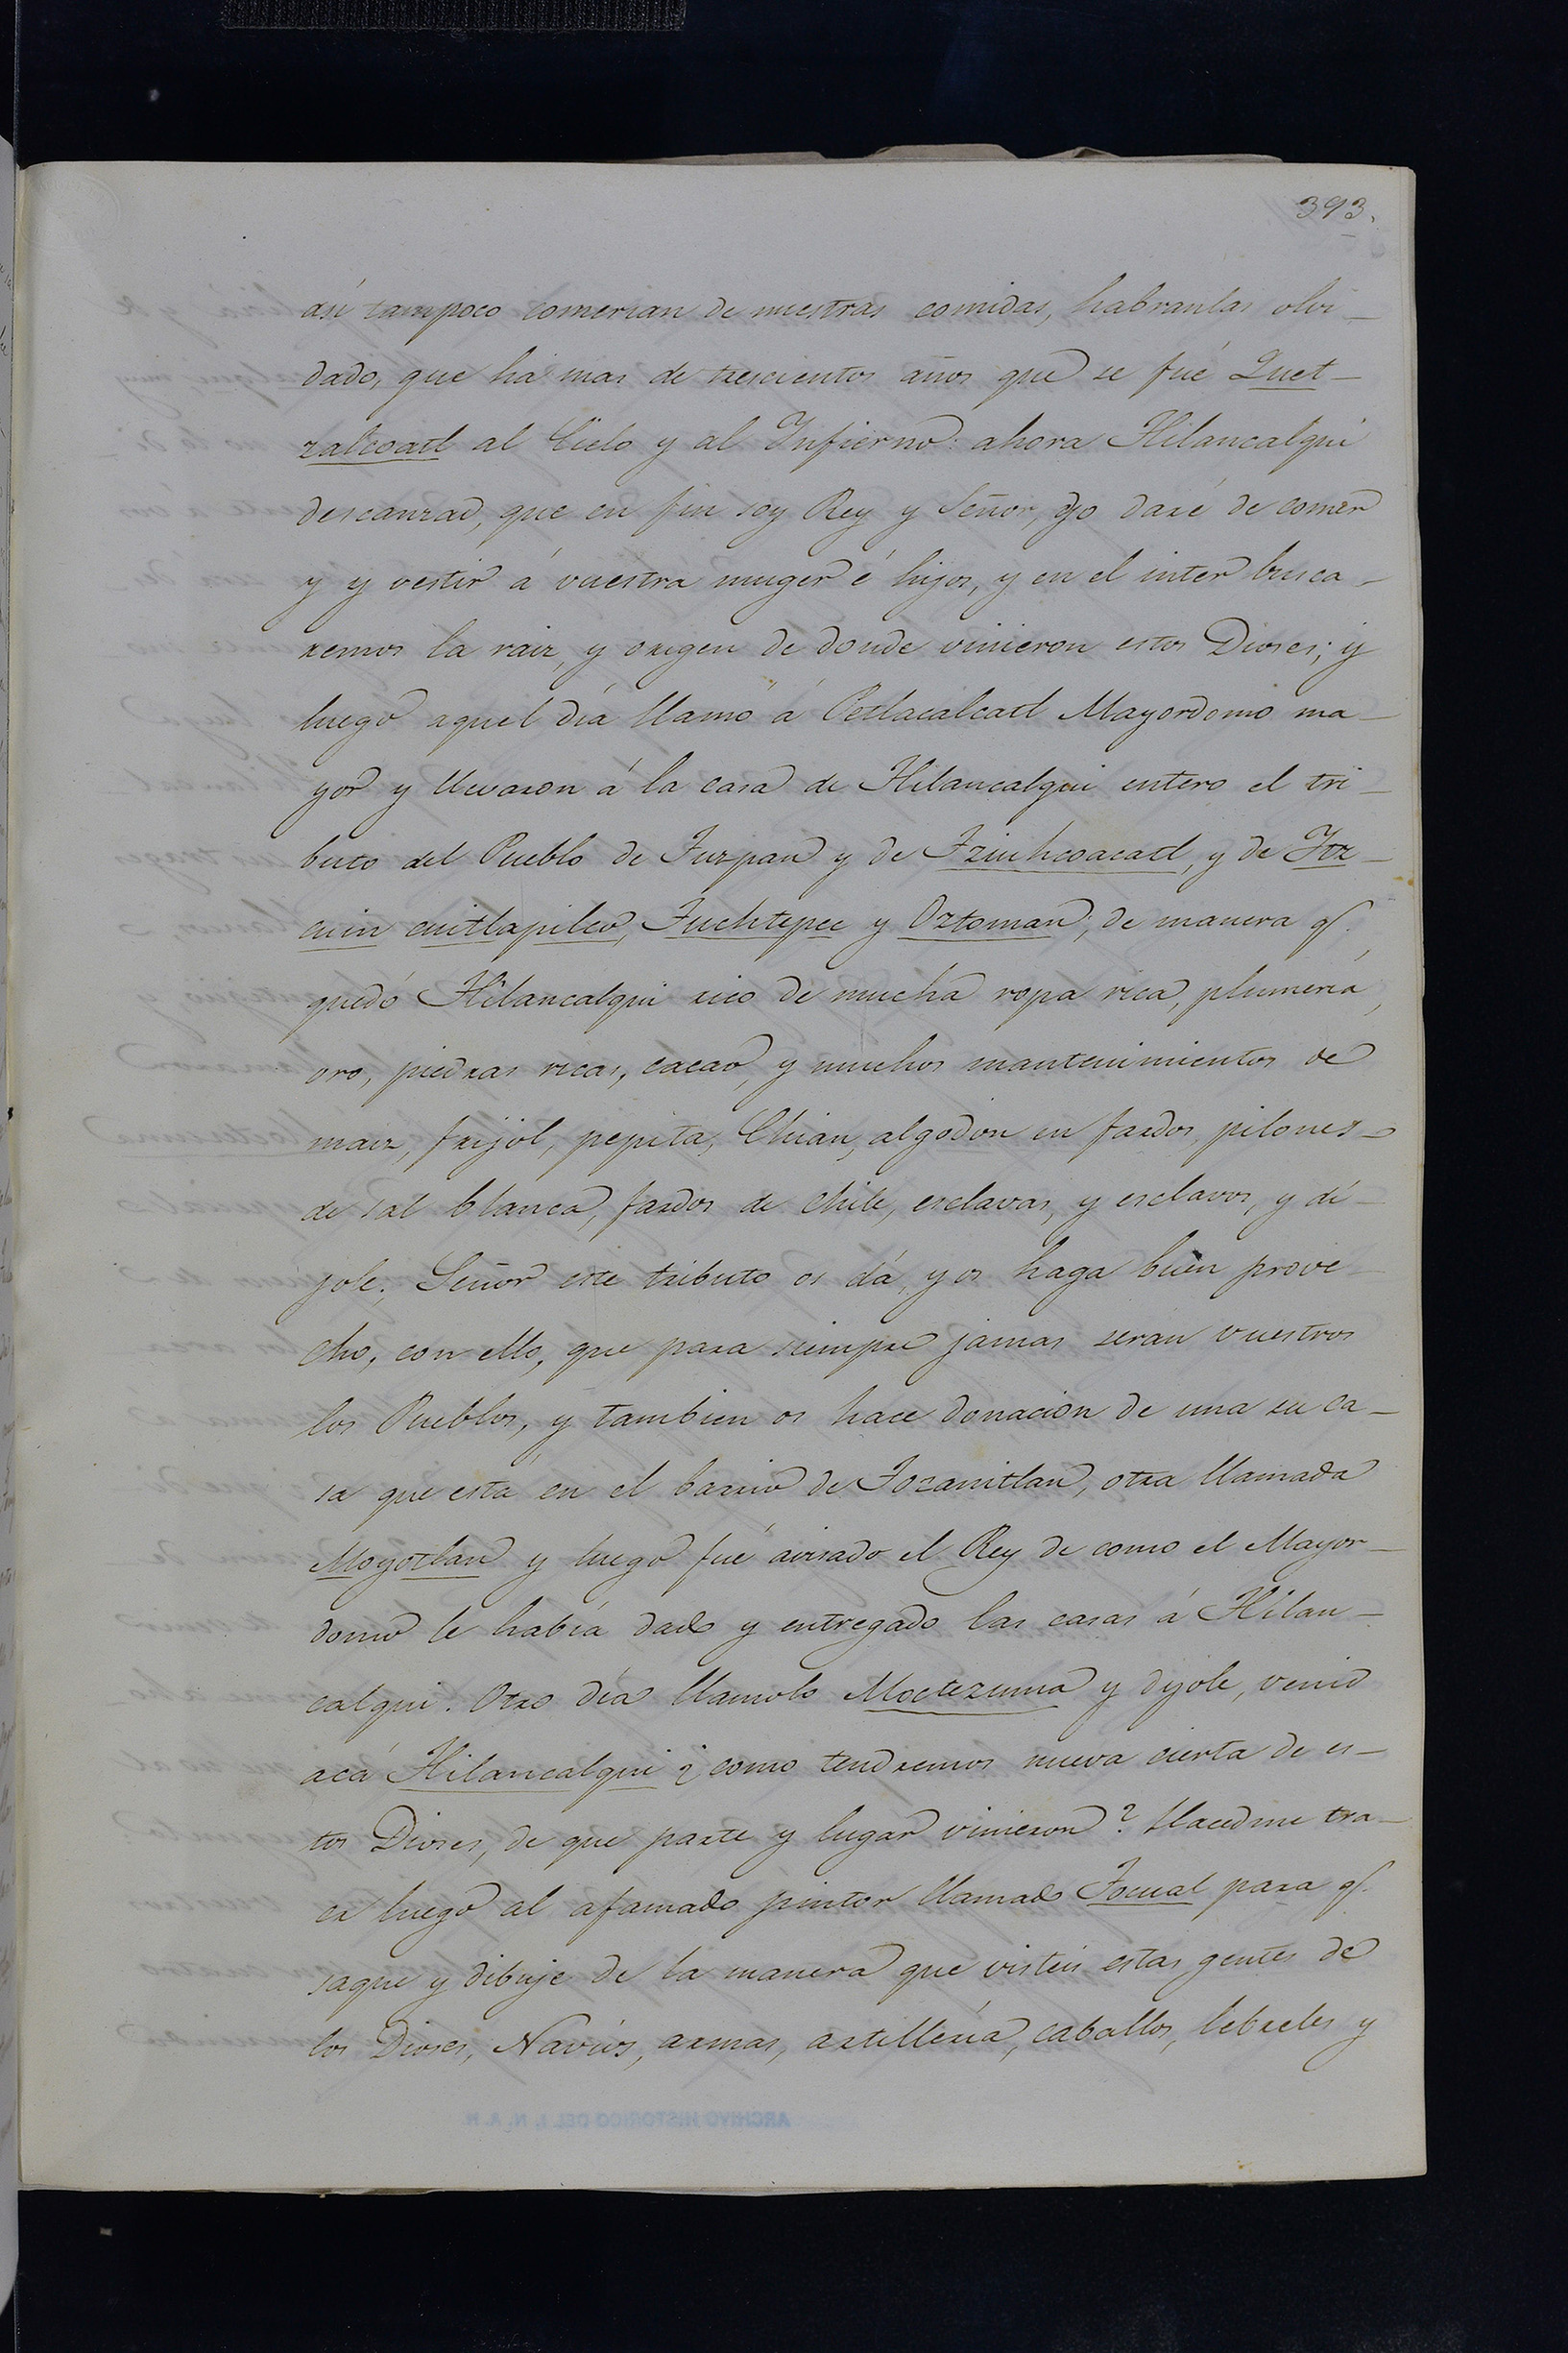 393.
así tampoco comerian de nuestras comidas, habranlas olvi-
dado, que ha mas de trescientos años que se fué Quet-
zalcoatl al Cielo y al Infierno: ahora Hilancalqui
descanzad, que en fin soy Rey y Señor, yo daré de comer
y y vestir á vuestra muger é hijos, y en el inter busca-
remos la raiz, y origen de donde vinieron estos Dioses; y
luego aquel día llamó á Petlacalcatl Mayordomo ma-
yor y llevaron á la casa de Hilancalqui entero el tri-
buto del Pueblo de Tuzpan y de Tziuhcoacatl, y de Itz-
cuin cuitlapilco, Tuchtepec y Oztoman; de manera q.
quedó Hilancalqui rico de mucha ropa rica, plumería,
oro, piedras ricas, cacao, y muchos mantenimientos de
maiz, frijol, pepita, Chian, algodon en fardos, pilones
de sal blanca, fardos de chile, esclavas, y esclavos, y di-
jole; Señor este tributo os dá, y os haga buen prove-
cho, con ello, que para siempre jamas serán vuestros
los Pueblos, y tambien os hace donacion de una su ca-
sa que está en el barrio de Tozanitlan, otra llamada
Moyotlan y luego fué avisado el Rey de como el Mayor-
domo le había dado y entregado las casas á Hilan-
calqui. Otro día llamolo Moctezuma y dijole, venid
acá Hilancalqui ¿como tendremos nueva cierta de es-
tos Dioses, de que parte y lugar vinieron? Hacedme tra-
er luego al afamado pintor llamado Tocual para q.
saque y dibuje de la manera que visteis estas gentes de
los Dioses, Navíos, armas, artillería, caballos, lebreles y
ARCHIVO HISTORICO DEL I. N. A. H.